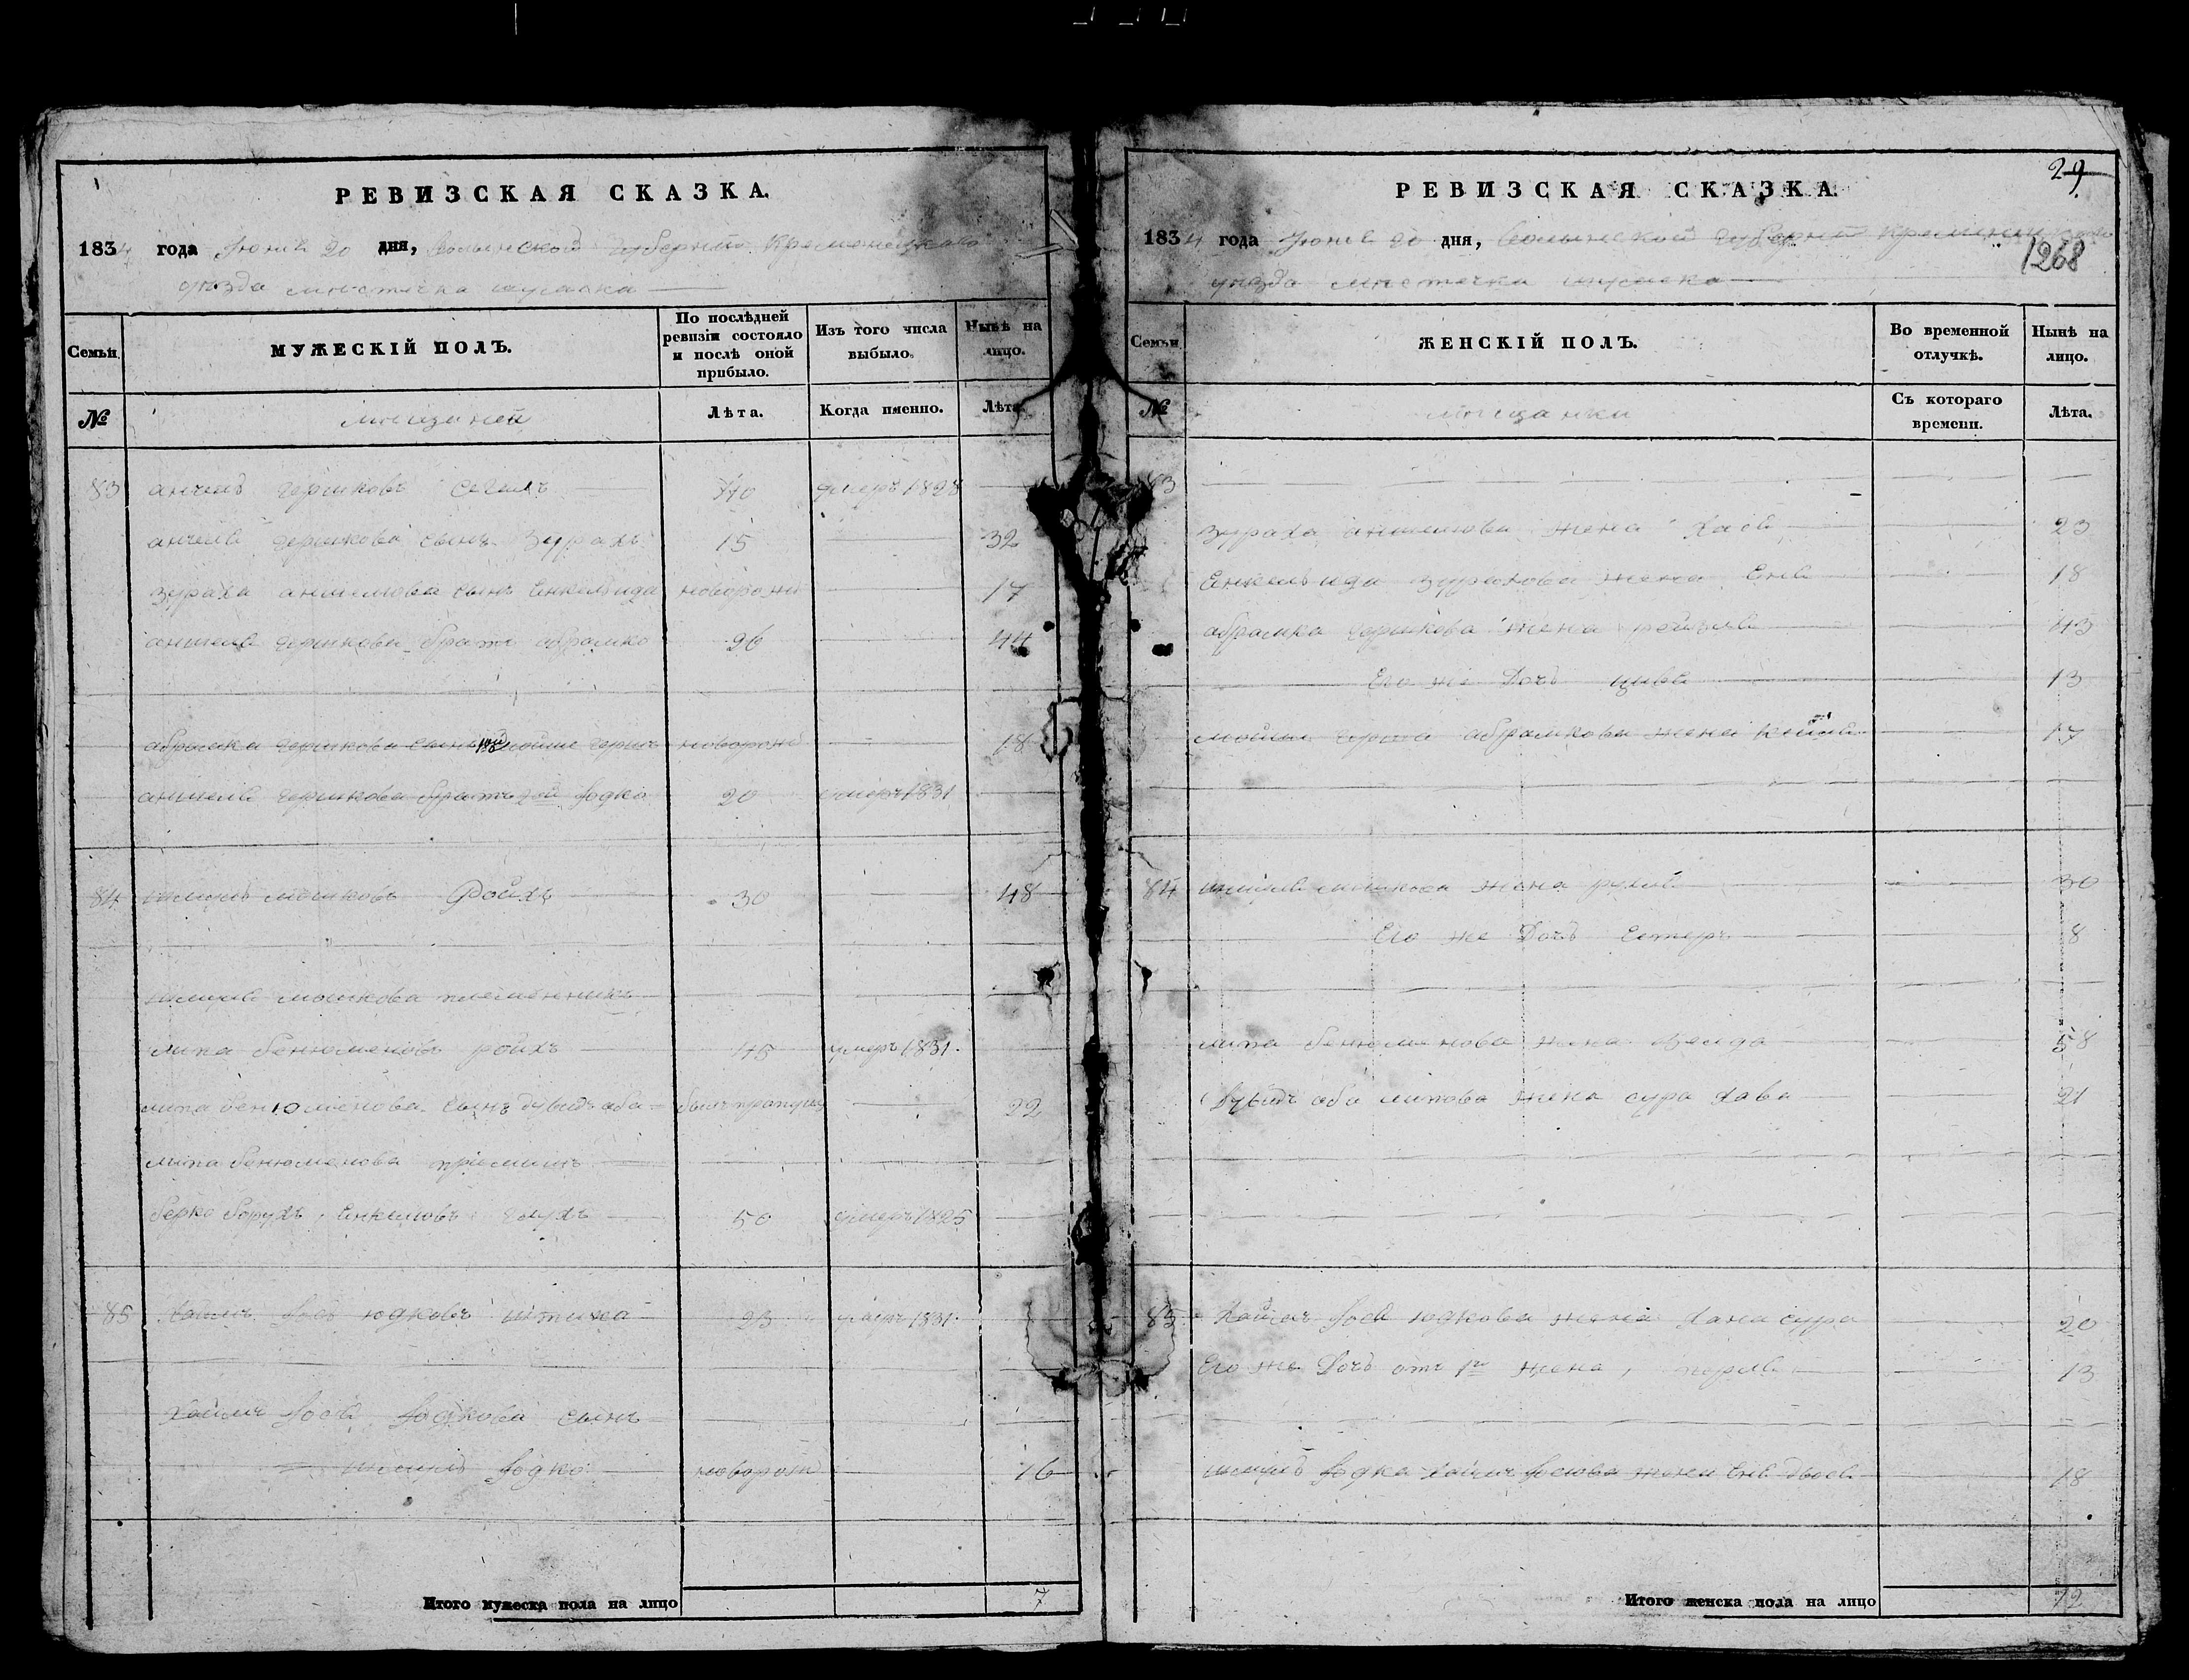 РЕВИЗСКАЯ СКАЗКА.
1834 года Июня 20 дня, Волынской губернии Кременецкаго
уезда местечка шумска
Семьи. МУЖЕСКІЙ ПОЛЪ. По послѣдней ревизіи состояло и послѣ оной прибыло. Изъ того числа выбыло. Нынѣ на лицо.
№ мещаней Лѣта. Когда именно. Лѣта.
83 анчель гершковъ сегалъ 70 умеръ 1828
анчеля гершкова сынъ Зурахъ 15 32
зураха аншелова сынъ новорожд 17
аншеля гершкова братъ абрамко 26 44
абрамка гершкова сынъ мойше гершъ новорожд 18
аншеля гершкова братъ 2й Иодко 20 умеръ 1831
84 шмуль мошковъ Ройхъ 30 48
шмуля мошкова племенникъ
липа бенюменовъ ройхъ 45 умеръ 1831.
липа бенюменова сынъ дувидъ аба былъ пропущ 22
липа бенюменова пріемишъ
берко борухъ Енкелювъ 50 умеръ 1825
85 Хаимъ Иось юдковъ 23 умеръ 1831.
Хаимъ Иося Иодкова сынъ
шмуль Иодко новорож 16
Итого мужеска пола на лицо 7
29
РЕВИЗСКАЯ СКАЗКА.
1834 года Июня 20 дня, Волынской губерніи Кременецкого
1268
уезда местечка шумска
Семьи. ЖЕНСКІЙ ПОЛЪ. Во временной отлучкѣ. Нынѣ на лицо.
№ мещанки Съ котораго времени. Лѣта.
83
зураха аншелова жена Хася 23
зурахова жена Еня 18
абрамка гершкова жена рейзля 43
Его же Дочь цивя 13
мойше герша абрамкова жена 17
84 шмуля мошкова жена рухля 30
Его же Дочь Естеръ 8
липа бенюменова жена 58
Дувидъ аба липова жена сура хава 21
85 Хаимъ Иося юдкова жена Хана сура 20
Его же Дочь отъ 1й жена, перля 13
шмуль Иодка хаимъ Иосюва жена Еня двося 18
Итого женска пола на лицо 12